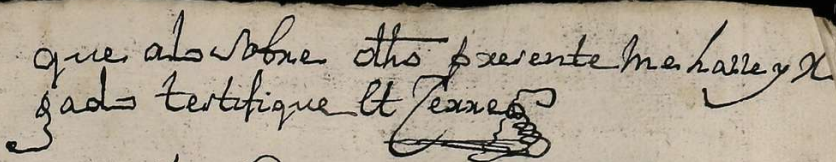 que alo sobre dho presente me halle y R
gado testifique et Ferrer